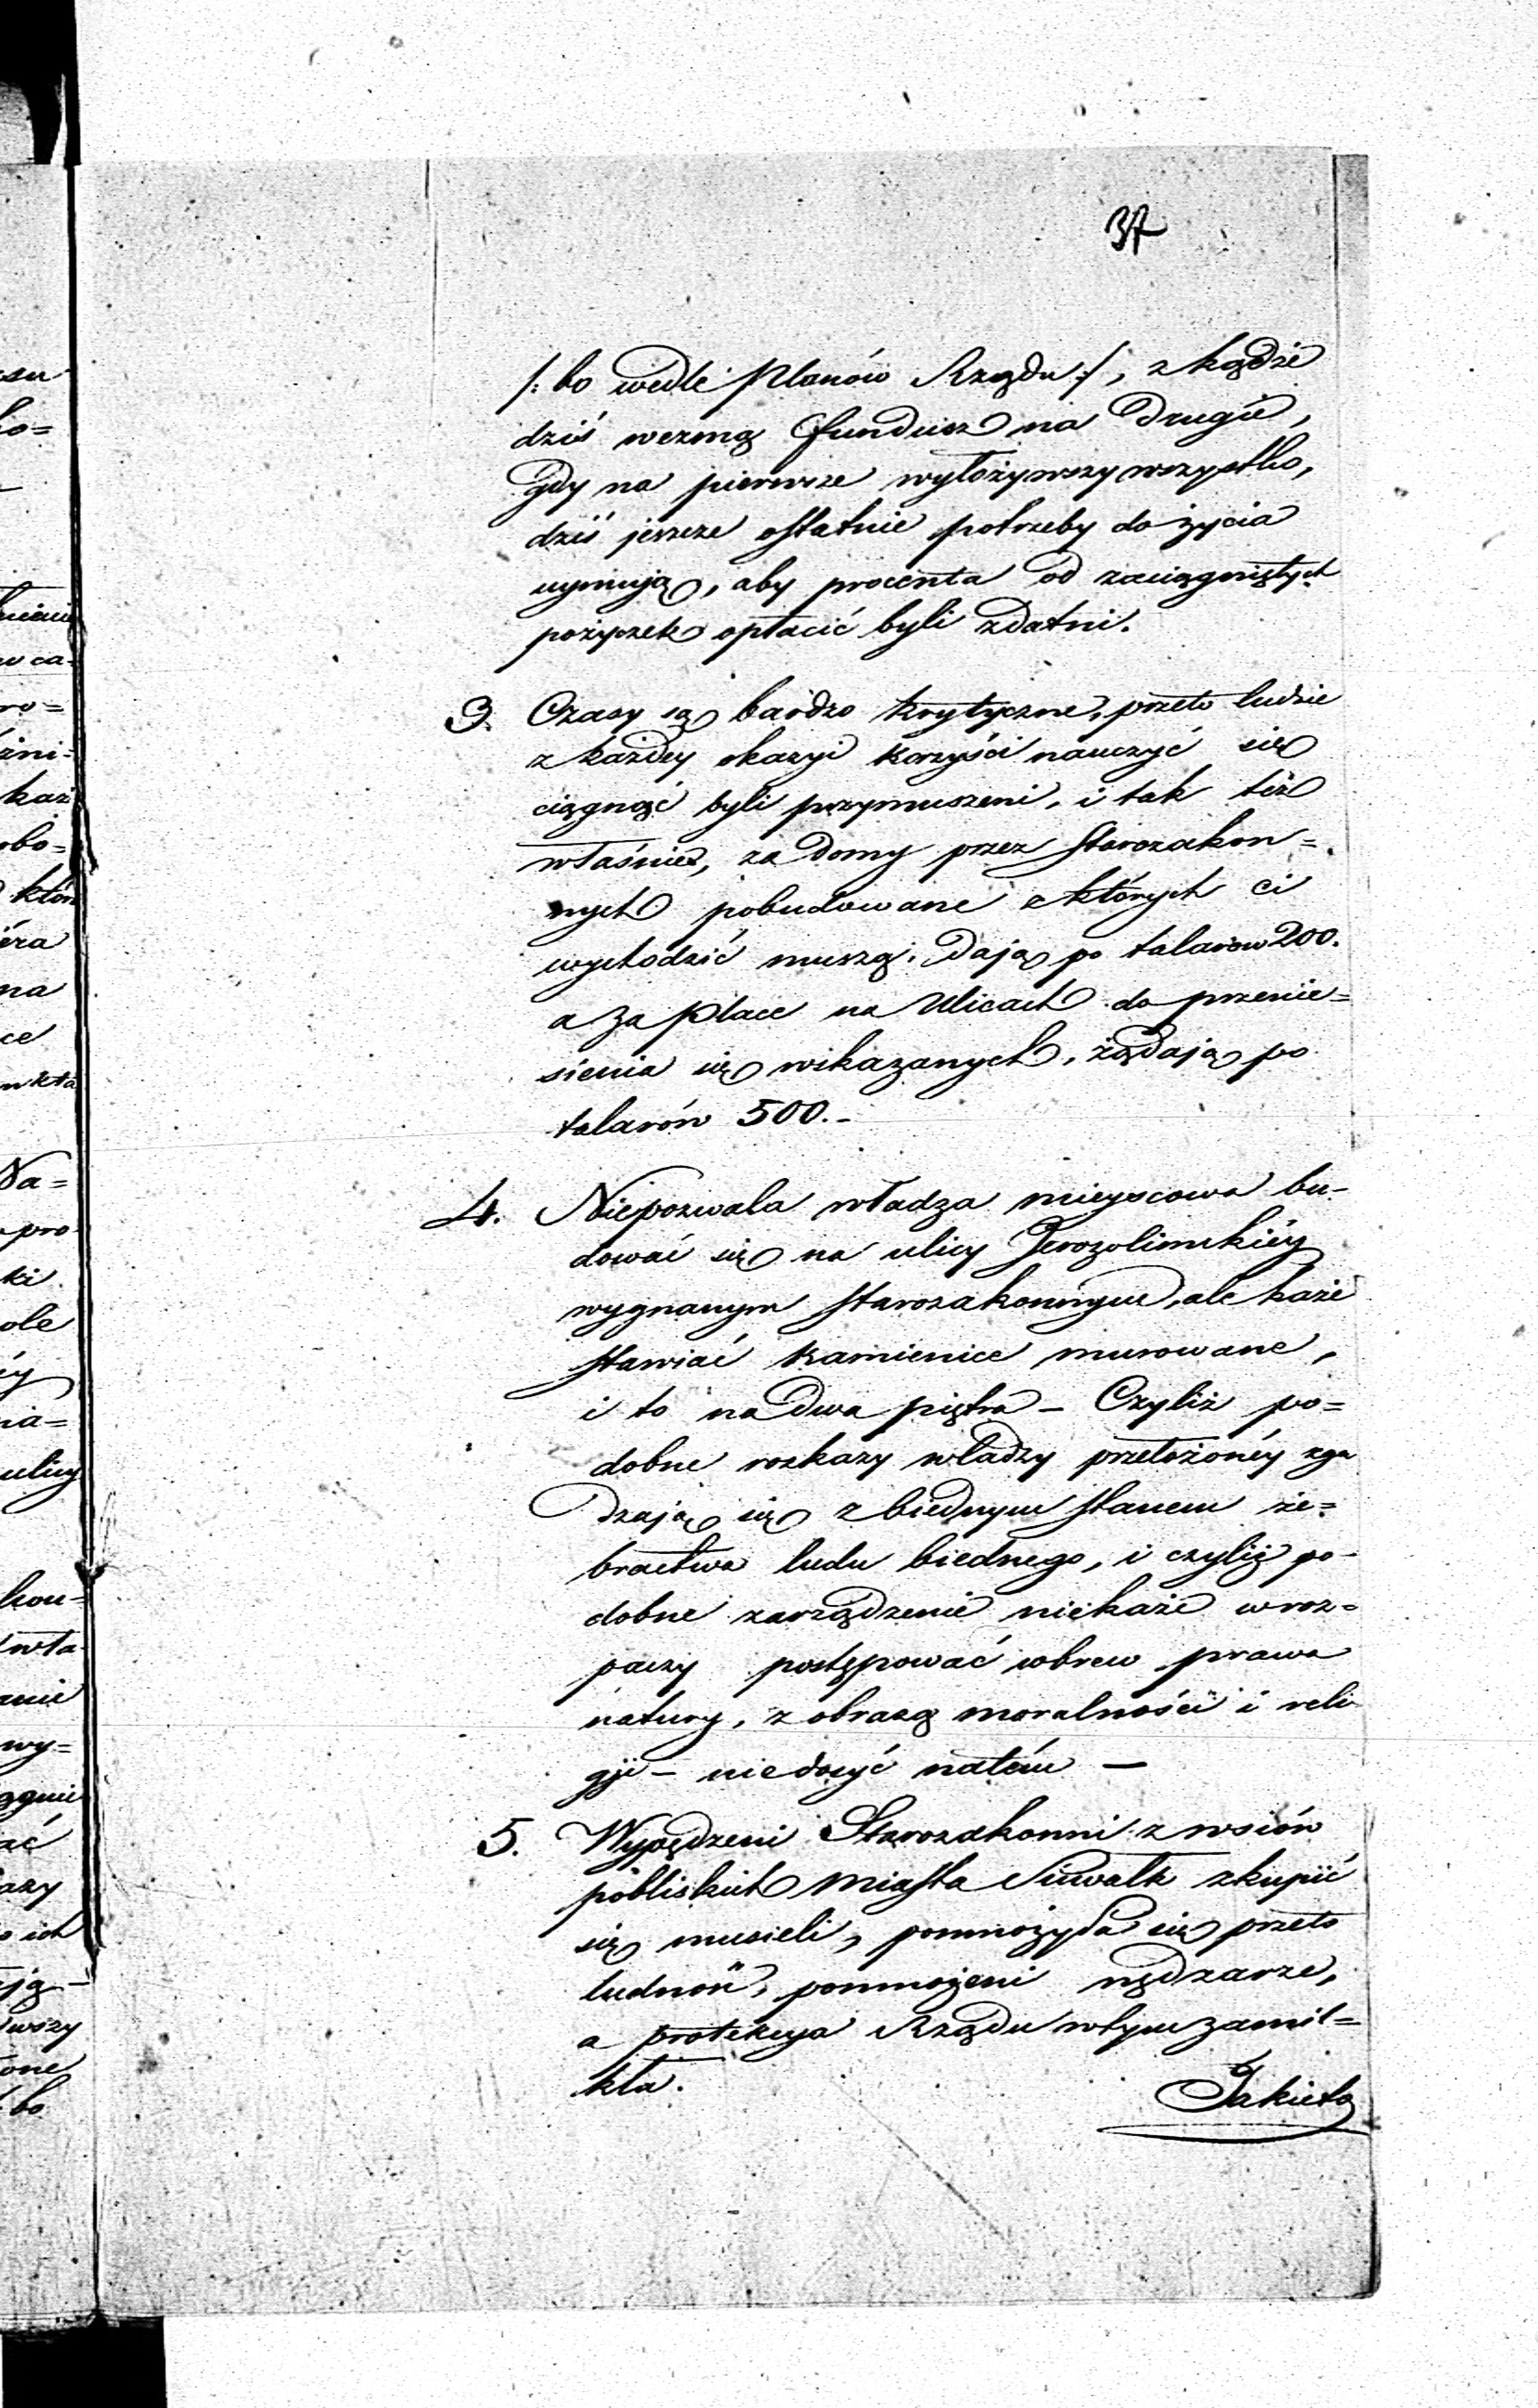 37
/: bo wedle Planów Rządu :/, z kądże
dziś wezmą fundusz na drugie,
gdy na pierwsze wyłożywszy wszystko,
dziś jeszcze ostatnie potrzeby do życia
uymują, aby procenta od zaciągniętych
pożyczek opłacić byli zdatni.
3. Czasy są bardzo krytyczne, przeto ludzie
z każdey okazyi korzyści nauczyć się
ciągnąć byli przymuszeni, i tak też
właśnie, za domy przez starozakon=
nych pobudowane z których ci
wychodzić muszą, dają po talarow 200.
a za place na Ulicach do przenie=
sienia się wskazanych, żądają po
talarów 500.-
4. Niepozwala władza mieyscowa bu-
dować się na ulicy Jerozolimskiéy
wygnanym starozakonnym, ale każe
stawiać kamienice murowane,
i to na dwa piętra - Czyliż po=
dobne rozkazy władzy przełożonéy zga
dzają się z biednym stanem że=
bractwa ludu biednego, i czyliż po-
dobne zarządzenie niekaże w roz=
paczy postępować wbrew prawa
natury, z obrazą moralności i reli
gji - niedosyć natém -
5. Wypędzeni Starozakonni z wsiów
pobliskich miasta Suwałk zkupić
się musieli, pomnożyła się przeto
ludność, pomnożeni nędzarze,
a protekcya Rządu w tym zamil=
kła.
su
ło=
w ca=
ro=
źni=
każ
obo=
któr
éra
na
ce
Na=
pro
ki
ole
éy
nia=
ulicy
kon=
wła
anie
wy=
ać
azy
o ich
ją -
wszy
one
bo